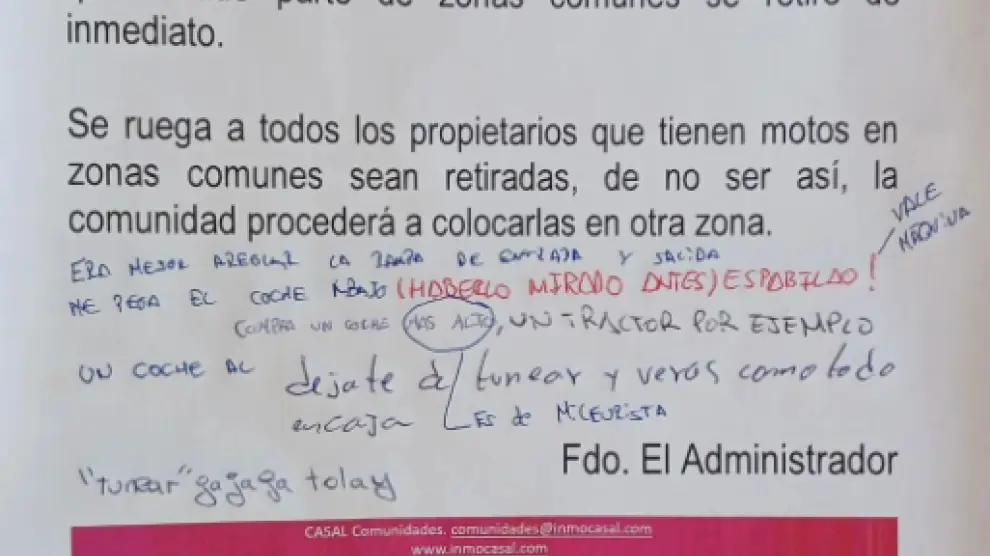 parte de zonas comunes se retire de
inmediato.
Se ruega a todos los propietarios que tienen motos en
zonas comunes sean retiradas, de no ser así, la
comunidad procederá a colocarlas en otra zona.
VALE
MÁQUINA
ERA MEJOR AREGLAR LA RAMPA DE ENTRADA Y SALIDA
ME PEGA EL COCHE ABAJO (HABERLO MIRADO ANTES) ESPABILAO!
COMPRA UN COCHE MAS ALTO, UN TRACTOR POR EJEMPLO
UN COCHE AL
dejate d/ tunear y veras como todo
encaja
ES de MILEURISTA
Fdo. El Administrador
"tunear" gajaga tolay
CASAL Comunidades. comunidades@inmocasal.com
www.inmocasal.com